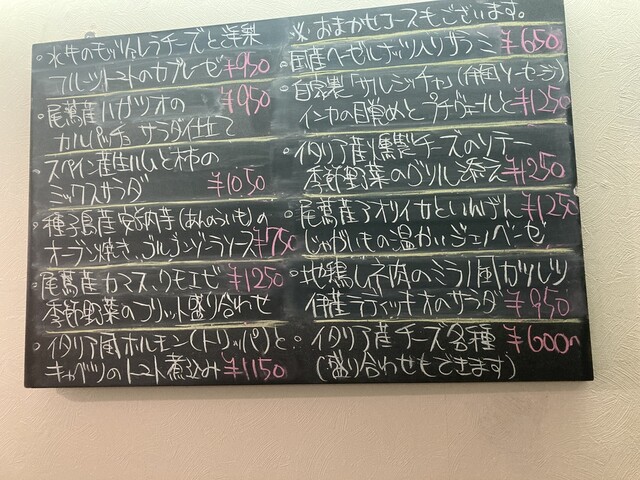 ・水牛のモッツァレラチーズと洋梨
フルーツトマトのカプレーゼ ¥950
・尾鷲産ハガツオの ¥950
カルパッチョ サラダ仕立て
・スペイン産生ハムと柿の
ミックスサラダ ¥1050
・種子島産安納芋(あんのういも)の
オーブン焼き、ゴルゴンゾーラソース ¥750
・尾鷲産カマス、クモエビ ¥1250
季節野菜のフリット盛り合わせ
・イタリア風ホルモン(トリッパ)と
キャベツのトマト煮込み ¥1150
※おまかせコースもございます。
・国産ヘーゼルナッツ入りサラミ ¥650
・自家製「サルシッチャ」(伊風ソーセージ)
インカの目覚めとプチヴェールと ¥1250
・イタリア産燻製チーズのソテー
季節野菜のグリル添え ¥1250
・尾鷲産アオリイカといんげん ¥1250
じゃがいもの温かいジェノベーゼ
・地鶏ムネ肉のミラノ風カツレツ
伊産ラディッキオのサラダ ¥950
・イタリア産チーズ各種 ¥600〜
(盛り合わせもできます)